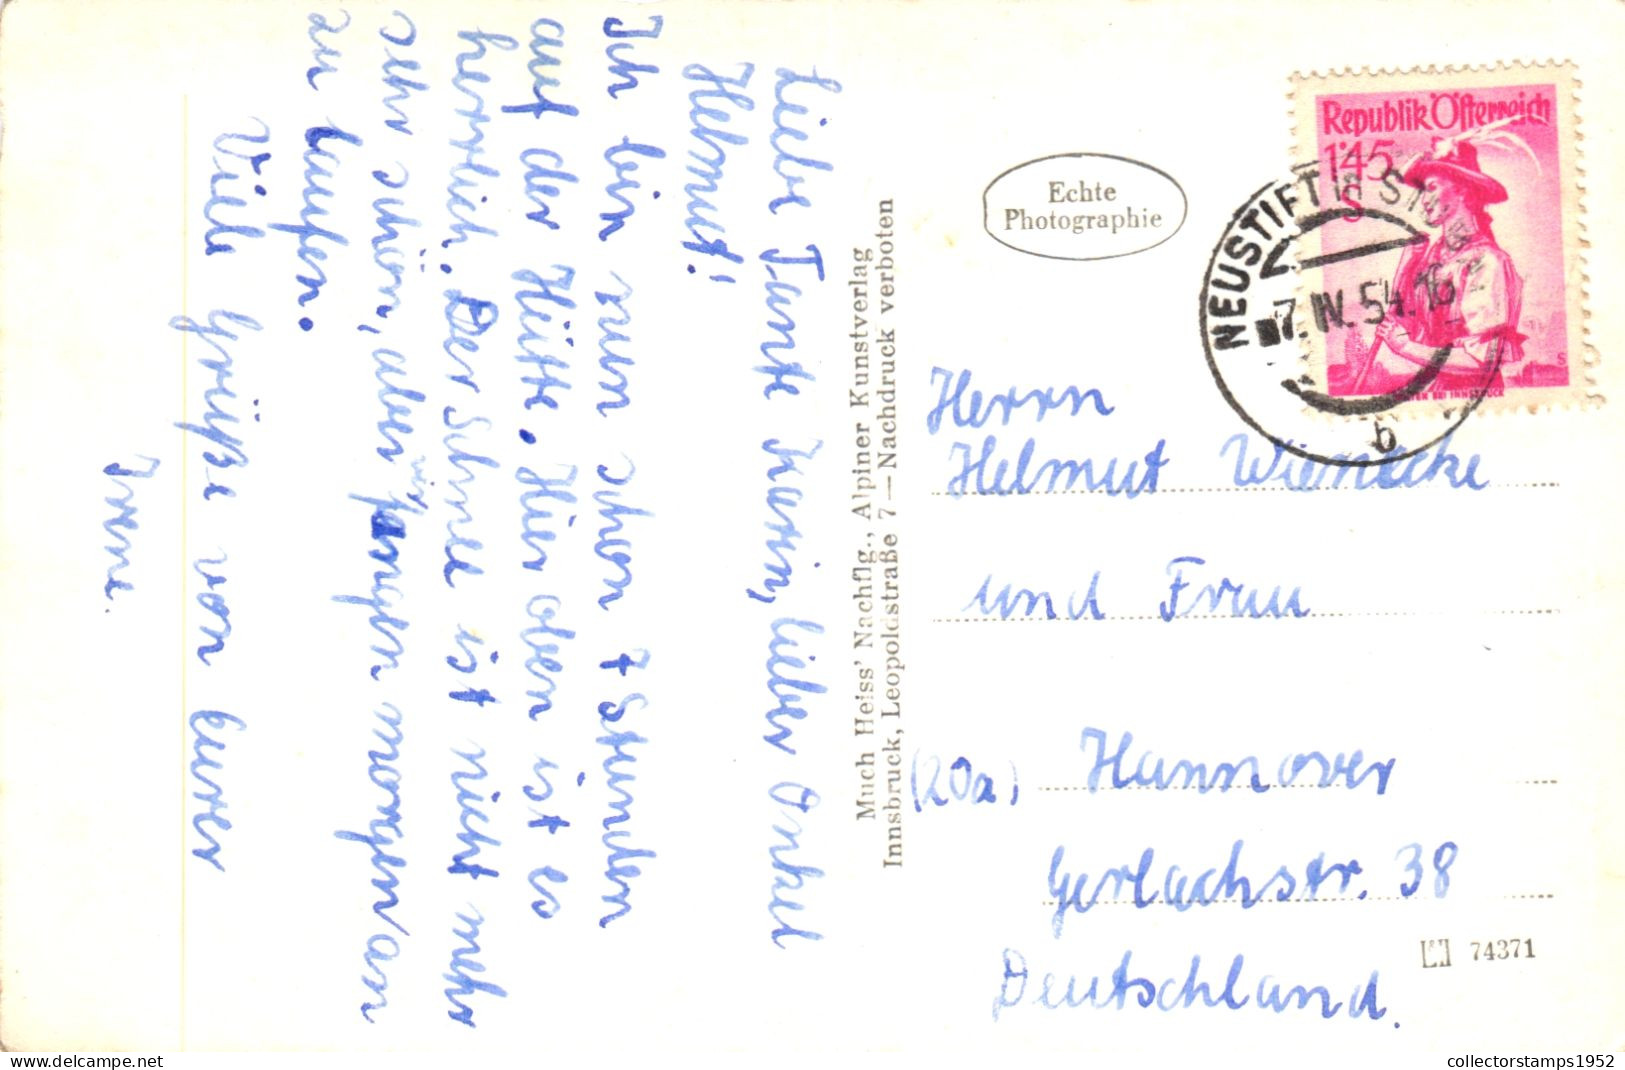 Liebe Tante Karin, lieber Onkel
Helmut!
Ich bin nun schon 7 Stunden
auf der Hütte. Hier oben ist es
herrlich. Der Schnee ist nicht mehr
sehr schön, aber wir fangen morgen an
zu laufen.
Viele Grüße von Eurer
Irene.
Much Heiss' Nachflg., Alpiner Kunstverlag
Innsbruck, Leopoldstraße 7 — Nachdruck verboten
Echte
Photographie
Republik Österreich
1'45
S
NEUSTIFT IM STUBAI
7. IV. 54. 16
b
BEI INNSBRUCK
Herrn
Helmut Wienecke
und Frau
(20a) Hannover
Gerlachstr. 38
Deutschland.
74371
collectorstamps1952